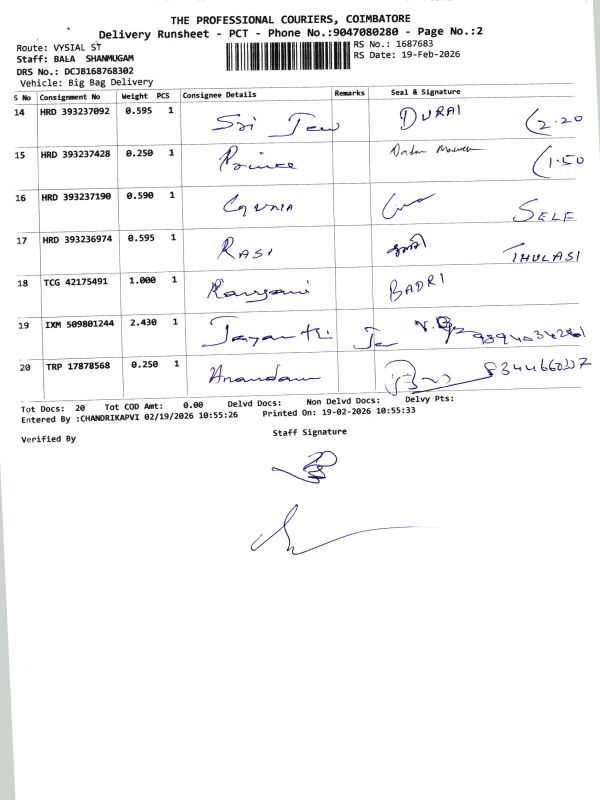 THE PROFESSIONAL COURIERS, COIMBATORE
Delivery Runsheet - PCT - Phone No.:9047080280 - Page No.:2
Route: VYSIAL ST RS No.: 1687683
Staff: BALA SHANMUGAM RS Date: 19-Feb-2026
DRS No.: DCJB168768302
Vehicle: Big Bag Delivery
S No Consignment No Weight PCS Consignee Details Remarks Seal & Signature
14 HRD 393237092 0.595 1 Sri DURAI 2.20
15 HRD 393237428 0.250 1 Prince 1.50
16 HRD 393237190 0.590 1 SELF
17 HRD 393236974 0.595 1 RASI THULASI
18 TCG 42175491 1.000 1 BADRI
19 IXM 509801244 2.430 1 Jayanthi
20 TRP 17878568 0.250 1 Anandam
Tot Docs: 20 Tot COD Amt: 0.00 Delvd Docs: Non Delvd Docs: Delvy Pts:
Entered By :CHANDRIKAPVI 02/19/2026 10:55:26 Printed On: 19-02-2026 10:55:33
Verified By Staff Signature